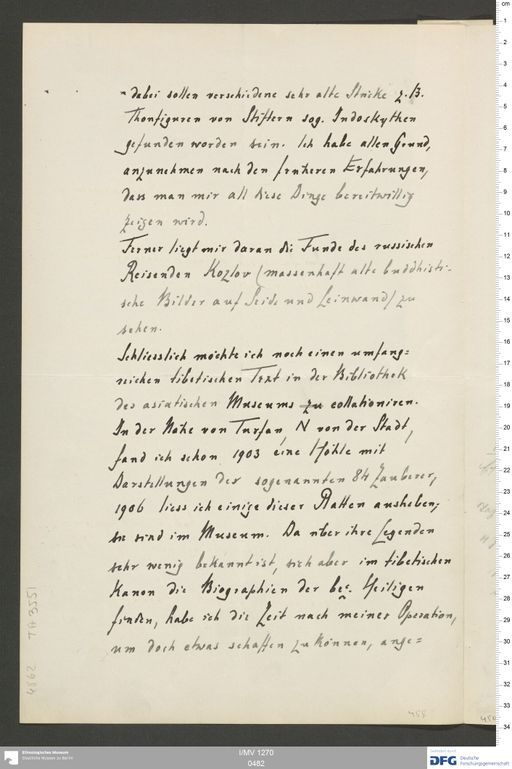 dabei sollen verschiedene sehr alte Stücke z. B.
Thonfiguren von Stiftern sog. Indoskythen
gefunden worden sein. Ich habe allen Grund,
anzunehmen nach den früheren Erfahrungen,
dass man mir all diese Dinge bereitwillig
zeigen wird.
Ferner liegt mir daran die Funde des russischen
Reisenden Kozlov (massenhaft alte buddhisti-
sche Bilder auf Seide und Leinwand) zu
sehen.
Schliesslich möchte ich noch einen umfang=
reichen tibetischen Text in der Bibliothek
des asiatischen Museums zu collationiren.
In der Nähe von Turfan, N von der Stadt,
fand ich schon 1903 eine Höhle mit
Darstellungen der sogenannten 84 Zauberer,
1906 liess ich einige dieser Platten ausheben;
sie sind im Museum. Da über ihre Legenden
sehr wenig bekannt ist, sich aber im tibetischen
Kanon die Biographien der Heiligen
finden, habe ich die Zeit nach meiner Operation,
um doch etwas schaffen zu können, ange=
4862 IA 3221
488
Ethnologisches Museum
Staatliche Museen zu Berlin
I/MV 1270
0482
DFG Deutsche
Forschungsgemeinschaft